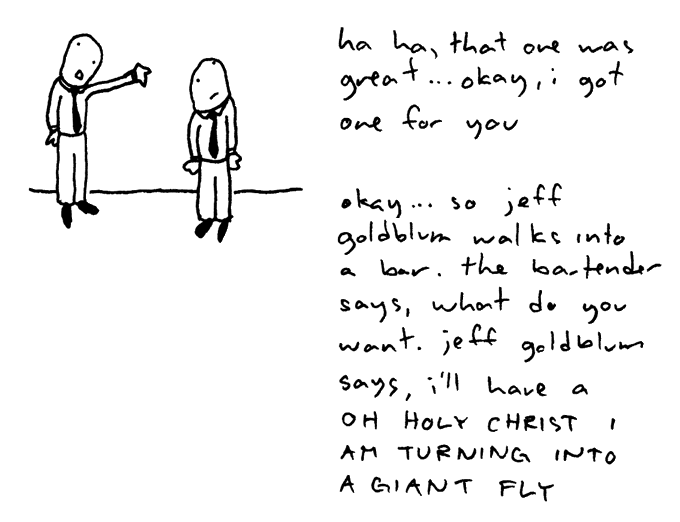 ha ha, that one was
great... okay, i got
one for you
okay... so jeff
goldblum walks into
a bar. the bartender
says, what do you
want. jeff goldblum
says, i'll have a
OH HOLY CHRIST I
AM TURNING INTO
A GIANT FLY